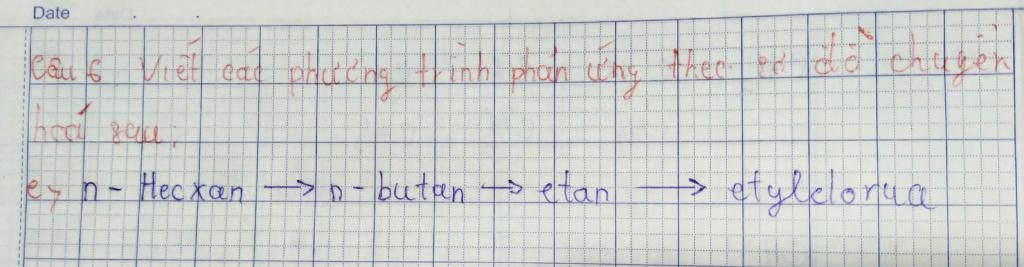 Date
Câu 6 Viết các phương trình phản ứng theo sơ đồ chuyển
hoá sau:
e, n - Hecxan → n - butan → etan → etylclorua